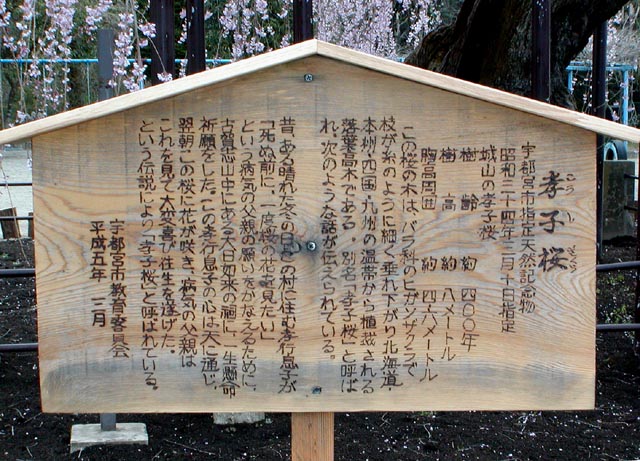 孝子桜
こうし ざくら
宇都宮市指定天然記念物
昭和三十四年三月十日指定
城山の孝子桜
樹齢 約 四〇〇年
樹高 約 八メートル
胸高周囲 約 四・六メートル
この桜の木は、バラ科のヒガンザクラで
枝が糸のように細く垂れ下がり、北海道・
本州・四国・九州の温帯から植栽される
落葉高木である。別名「孝子桜」と呼ば
れ、次のような話が伝えられている。
昔、ある晴れた冬の日、この村に住む孝行息子が
「死ぬ前に、一度桜の花を見たい」
という病気の父親の願いをかなえるために、
古賀志山中にある大日如来の祠に、一生懸命
祈願をした。この孝行息子の心は天に通じ、
翌朝この桜に花が咲き、病気の父親は
これを見て大変喜び往生を遂げた。
という伝説により「孝子桜」と呼ばれている。
平成五年 三月
宇都宮市教育委員会